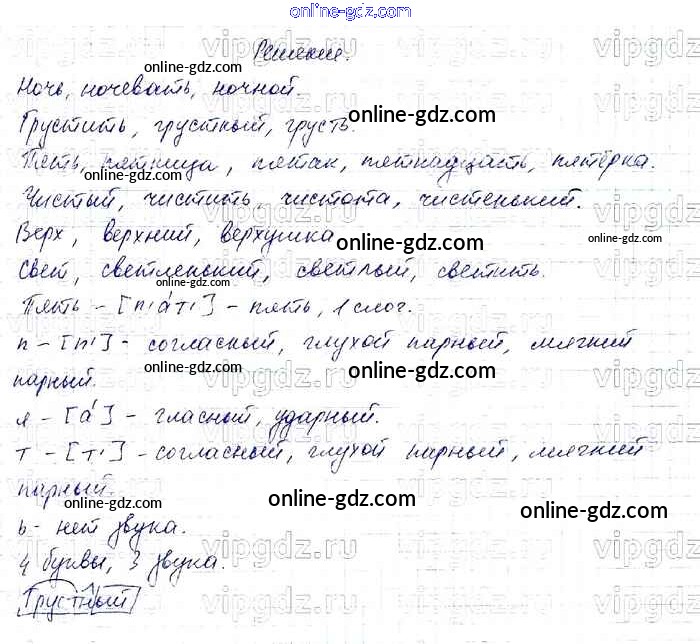 online-gdz.com
Решение. online-gdz.com
Ночь, ночевать, ночной.
Грустить, грустный, грусть. online-gdz.com
Пять, пятница, пятак, пятнадцать, пятёрка.
online-gdz.com
Чистый, чистить, чистота, чистенький.
Верх, верхний, верхушка online-gdz.com online-gdz.com
Свет, светленький, светлый, светить.
Пять – [п'а́т'] – пять, 1 слог.
п – [п'] – согласный, глухой парный, мягкий
парный. online-gdz.com online-gdz.com
я – [а́] – гласный, ударный.
т – [т'] – согласный, глухой парный, мягкий
online-gdz.com
парный. online-gdz.com
ь – нет звука. online-gdz.com
4 буквы, 3 звука.
Грустный
vipgdz